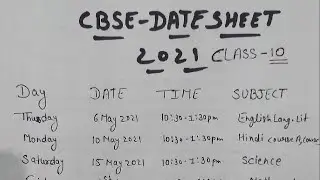 CBSE-DATE SHEET
2021 CLASS-10
Day DATE TIME SUBJECT
Thursday 6 May 2021 10:30-1:30pm English Lang. Lit
Monday 10 May 2021 10:30-1:30pm Hindi course A,
Saturday 15 May 2021 10:30-1:30pm Science